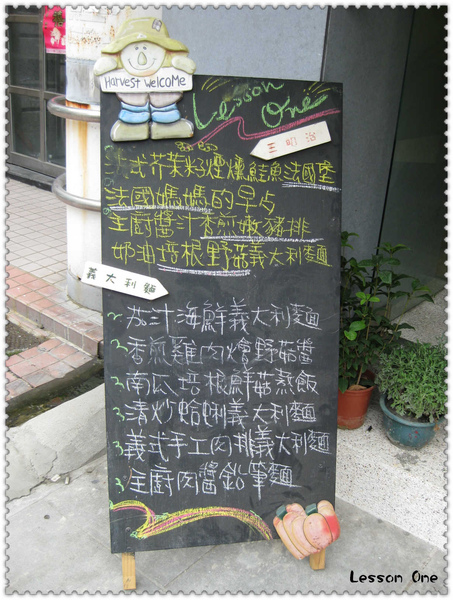 HARVEST WELCOME
Lesson
One
三明治
法式芥茉籽燻鮭魚法國堡
法國媽媽的早点
主廚醬汁香煎嫩豬排
奶油培根野菇義大利麵
義大利麵
茄汁海鮮義大利麵
香煎雞肉燴野菇醬
南瓜培根鮮菇蒸飯
清炒蛤蜊義大利麵
義式手工肉排義大利麵
主廚肉醬鉛筆麵
Lesson One